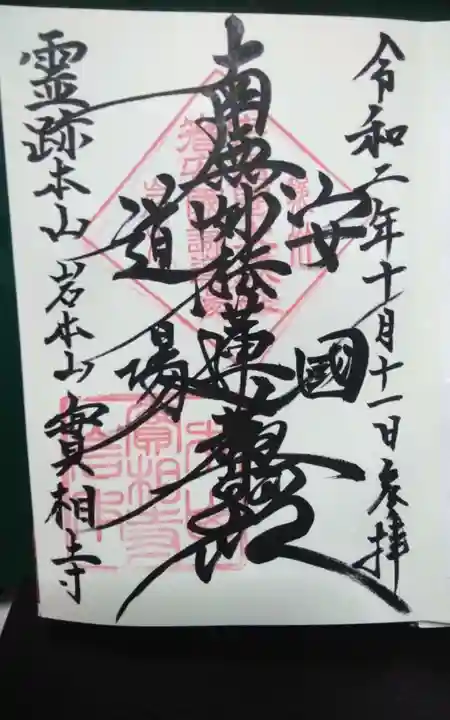 令和二年十月十一日参拝
安國
南無妙法蓮華経
道場
霊跡本山岩本山實相寺